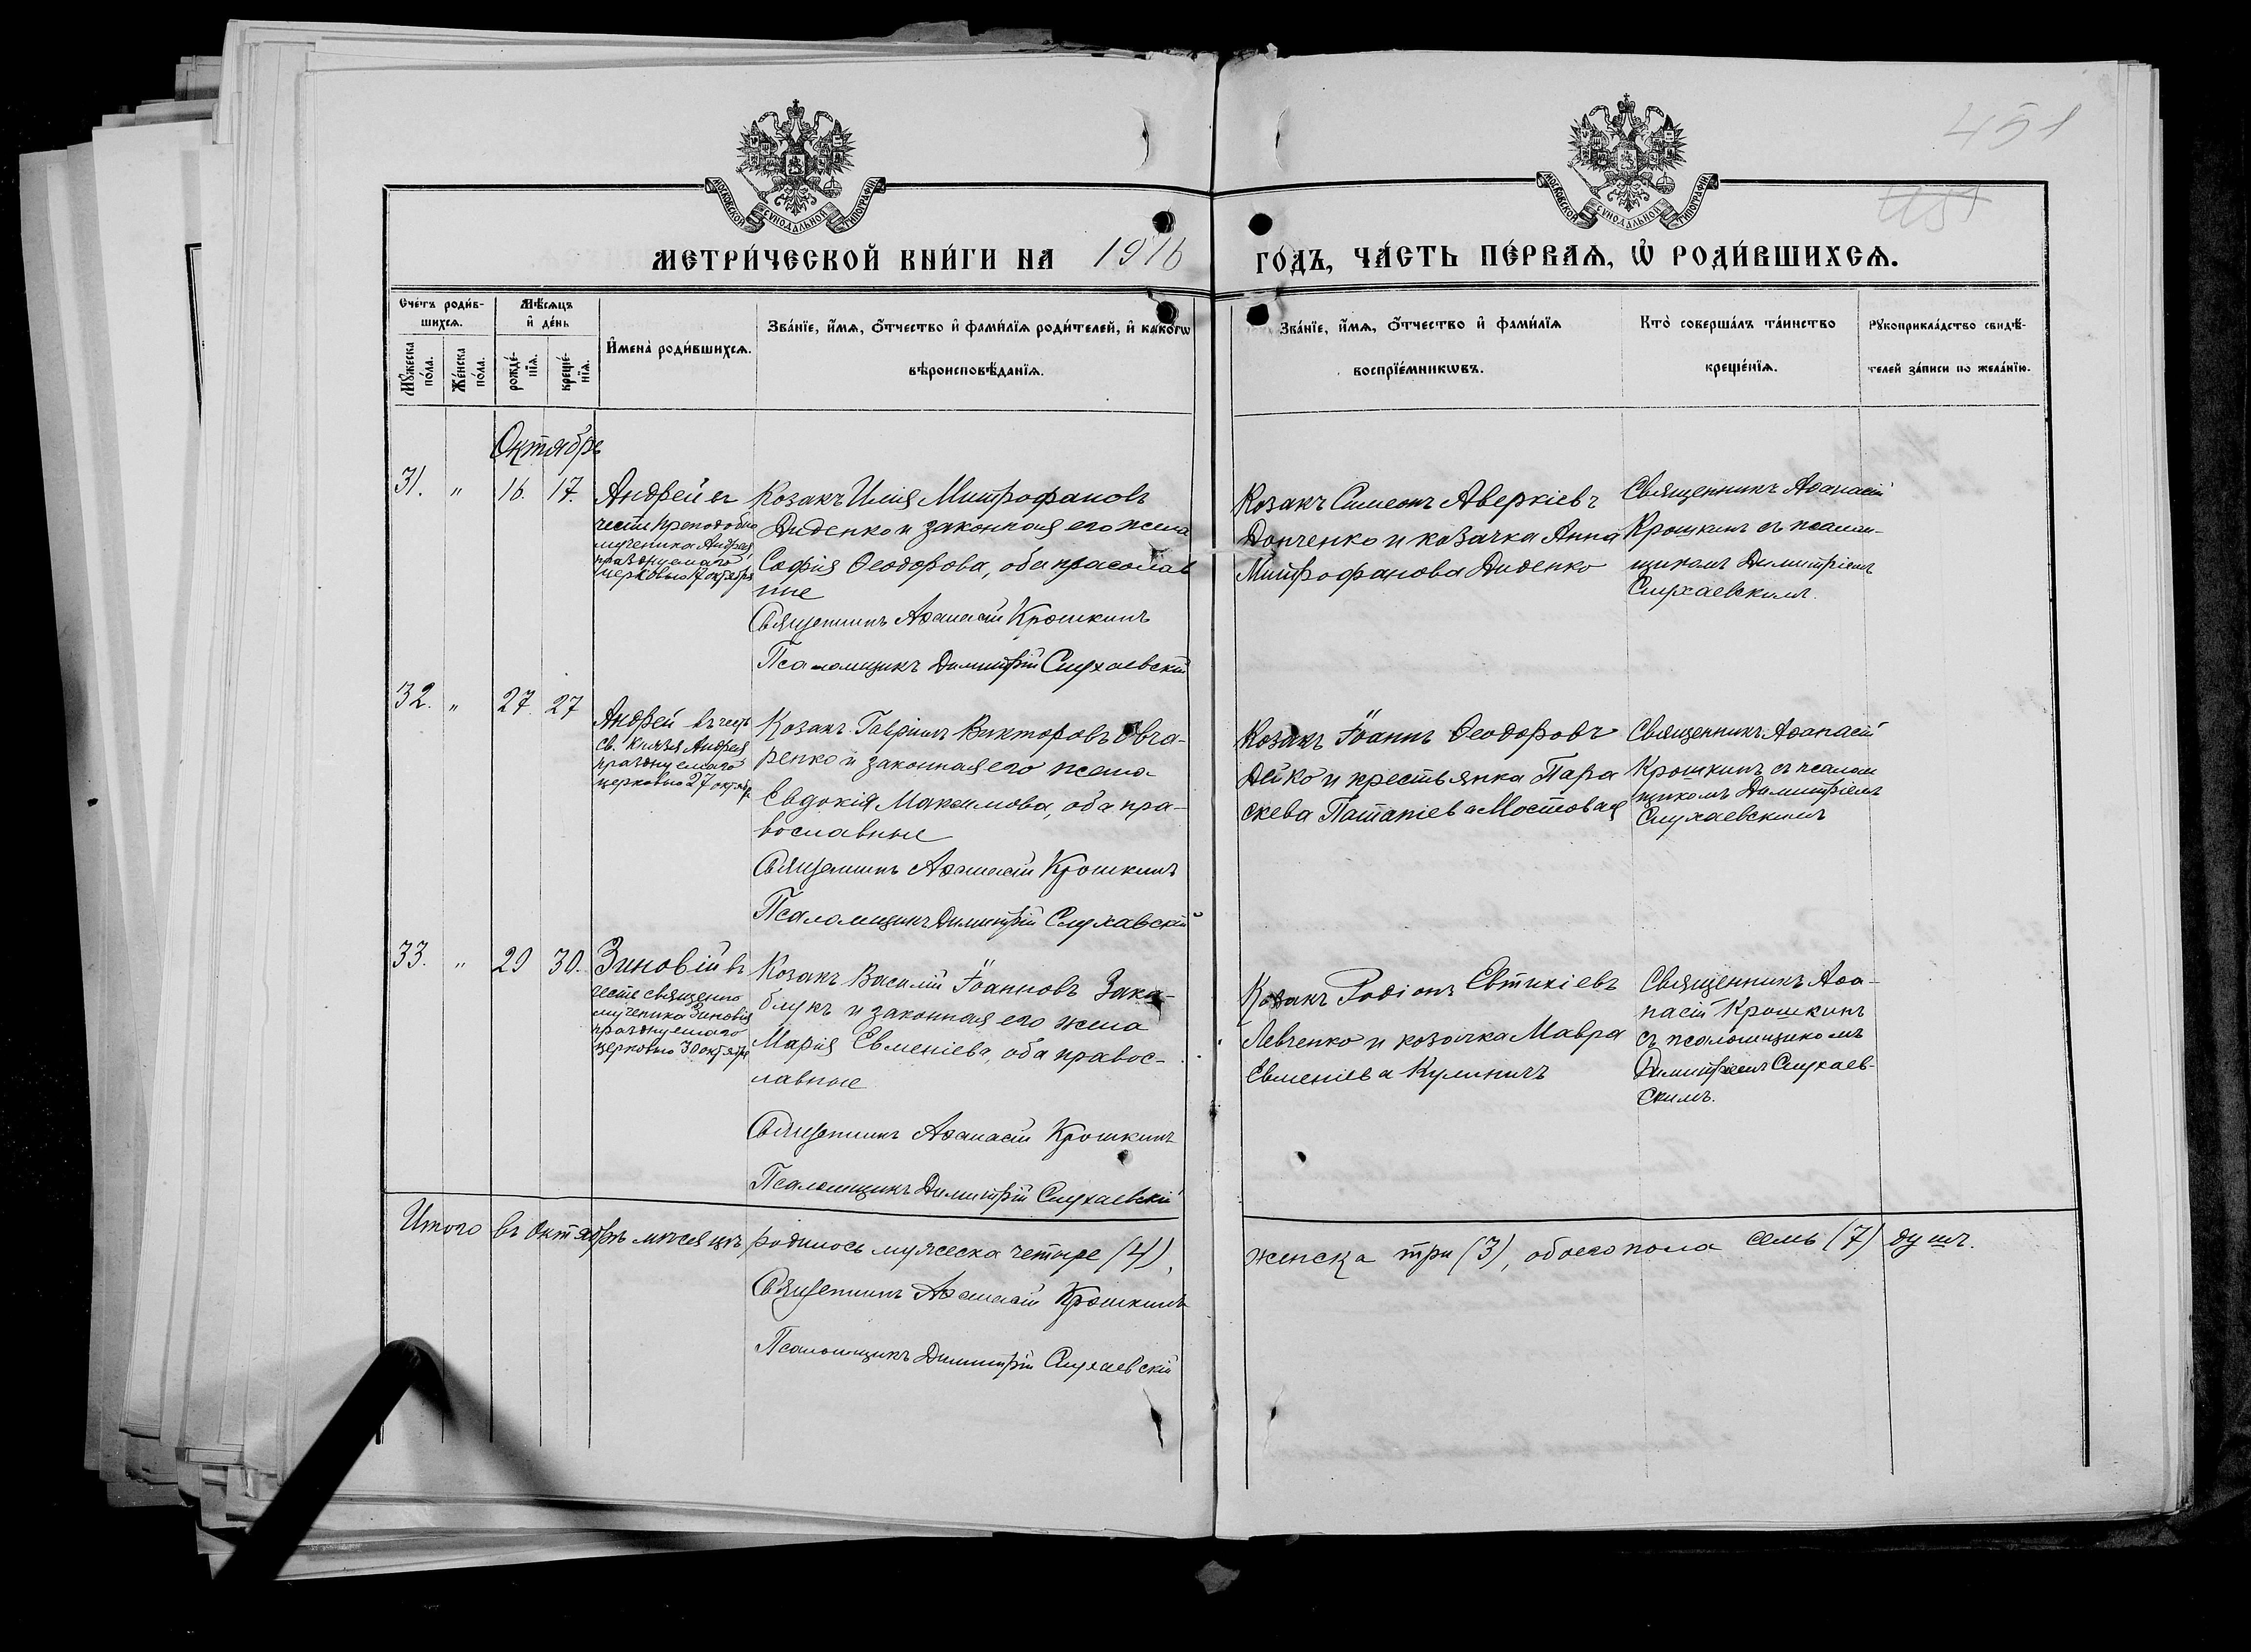 451
МОСКОВСКОЙ СѴНОДАЛЬНОЙ ТИПОГРАФІИ
МОСКОВСКОЙ СѴНОДАЛЬНОЙ ТИПОГРАФІИ
МЕТРИ́ЧЕСКОЙ КНИ́ГИ НА 1916 ГО́ДЪ, ЧА́СТЬ ПЕ́РВАѦ, Ѡ҆ РОДИ́ВШИХСѦ.
Сче́тъ роди́в-
шихсѧ.
Мѣ́сѧцъ
и҆ де́нь
Мꙋ́жеска
по́ла.
Же́нска
по́ла.
рожде́-
нїѧ.
креще́-
нїѧ.
И҆мена̀ роди́вшихсѧ.
Зва́нїе, и҆́мѧ, ѻ҆́тчество и҆ фами́лїѧ роди́телей, и҆ како́гѡ
вѣроисповѣ́данїѧ.
Зва́нїе, и҆́мѧ, ѻ҆́тчество и҆ фами́лїѧ
воспрїе́мникѡвъ.
Кто̀ соверша́лъ та́инство
креще́нїѧ.
Рꙋкоприкла́дство свидѣ́-
телей за́писи по жела́нїю.
Октябрь
31. " 16. 17.
Андрей въ
честь преподобно
мученика Андрея,
празднуемаго
церковью 17 октября
Козакъ Илія Митрофановъ
Диденко и законная его жена
Софія Ѳеодорова, оба прасослав
ные
Священникъ Аѳанасій Крошкинъ
Псаломщикъ Димитрій Слухаевскій
Козакъ Симеонъ Аверкіевъ
Донченко и козачка Анна
Митрофанова Диденко
Священникъ Аѳанасій
Крошкинъ съ псалом-
щикомъ Димитріемъ
Слухаевскимъ.
32. " 27 27
Андрей въ честь
св. князя Андрея
празднуемаго
церковью 27 октябр.
Козакъ Гавріилъ Викторовъ Овча-
ренко и законная его жена
Евдокія Максимова, оба пра-
вославные
Священникъ Аѳанасій Крошкинъ
Псаломщикъ Димитрій Слухавскій
Козакъ Іоаннъ Ѳеодоровъ
Дейко и крестьянка Пара
скева Потапіева Мостовая
Священникъ Аѳанасій
Крошкинъ съ псалом
щикомъ Димитріемъ
Слухаевскимъ
33. " 29 30.
Зиновій въ
честь священно
мученика Зиновія
празднуемаго
церковью 30 октября
Козакъ Василій Іоанновъ Зака-
блукъ и законная его жена
Марія Евменіева, оба правос-
лавные
Священникъ Аѳанасій Крошкинъ
Псаломщикъ Димитрій Слухаевскій
Козакъ Родіонъ Евтихіевъ
Левченко и козачка Мавра
Евменіева Кулиничъ
Священникъ Аѳа-
насій Крошкинъ
съ псаломщикомъ
Димитріемъ Слухаев-
скимъ.
Итого въ Октябрѣ мѣсяцѣ, родилось мужеска четыре (4), женска три (3), обоего пола семь (7) душъ.
Священникъ Аѳанасій Крошкинъ
Псаломщикъ Димитрій Слухаевскій